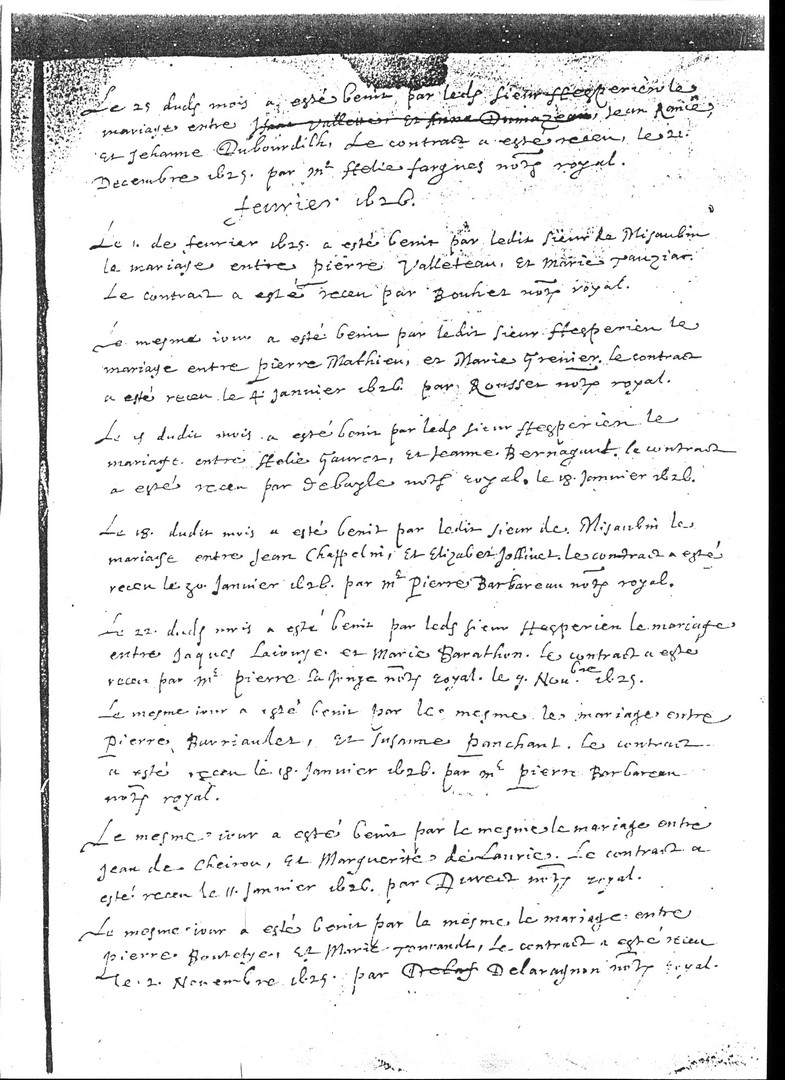 Le 25 duds mois a esté benit par leds sieur Hesperien le
mariage entre Valleteau et Anne Dumazeau, Jean
et Jehanne Dubourdilh, Le contract a esté receu, le 21.
Decembre 1625. par mᵉ Helie fargues notʳᵉ royal.
fevrier 1626.
Le 1. de fevrier 1625. a esté benit par ledit sieur de Misaubin
le mariage entre pierre Valleteau, et Marie
Le contract a esté receu par Bouhet notʳᵉ royal.
Le mesme iour a esté benit par ledit sieur Hesperien le
mariage entre pierre Mathieu, et Marie Grenier, le contract
a esté receu le 4. Janvier 1626 par Rousset notʳᵉ royal.
Le dudit mois a esté benit par leds sieur Hesperien le
mariage entre Helie Gauret, et Jeanne le contract
a esté receu par Debayle notʳᵉ royal, le 18. Janvier 1626.
Le 18. dudit mois a esté benit par ledit sieur de Misaubin le
mariage entre Jean Chappelin, et Elizabet Jollivet le contract a esté
receu le 30. Janvier 1626. par mᵉ Pierre Barbareau notʳᵉ royal.
Le 22. duds mois a esté benit par leds sieur Hesperien le mariage
entre Jaques et Marie Barathon. le contract a esté
receu par mᵉ pierre notʳᵉ royal. le 9. Nouᵇʳᵉ 1625.
Le mesme iour a esté benit par le mesme le mariage entre
Pierre Burriaulet, et Susanne Panchant. Le contract
a esté receu le 18. Janvier 1626. par mᵉ pierre Barbareau
notʳᵉ royal.
Le mesme iour a esté benit par le mesme le mariage entre
Jean de Cheirou, et Marguerite de Laurie. Le contract a
esté receu le 11. Janvier 1626. par notʳᵉ royal.
Le mesme iour a esté benit par le mesme, le mariage entre
pierre et Marie Le contract a esté receu
le 2. Novembre 1625. par Delaragnon notʳᵉ royal.